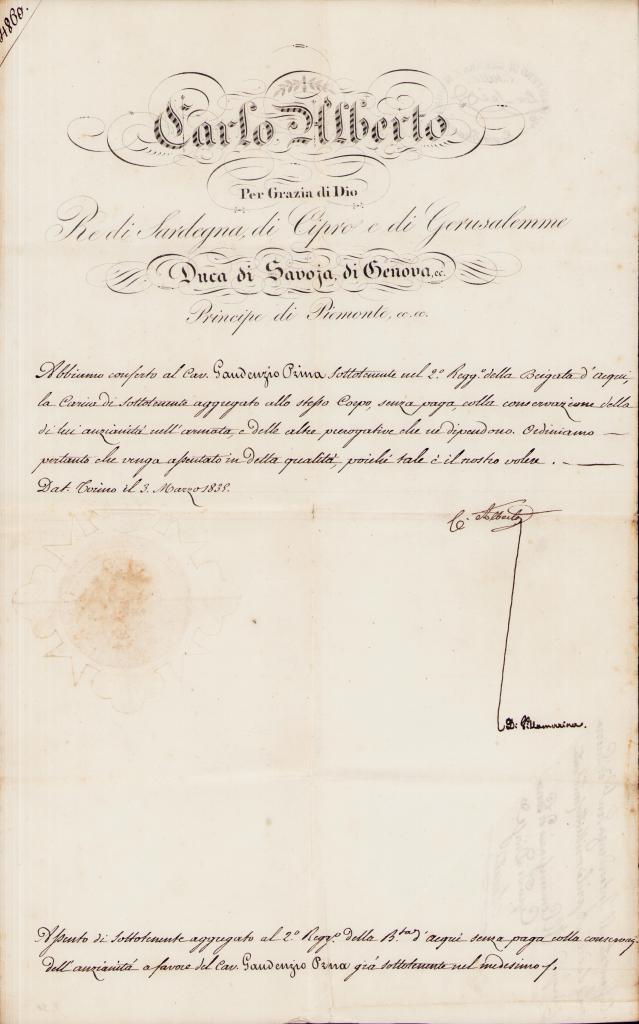 4860.
Carlo Alberto
Per Grazia di Dio
Re di Sardegna, di Cipro e di Gerusalemme
Duca di Savoja, di Genova, ec.
Principe di Piemonte, ec. ec.
Abbiamo conferto al Cav. Gaudenzio Prina Sottotenente nel 2.º Regg.º della Brigata d'Acqui,
la Carica di Sottotenente aggregato allo stesso Corpo, senza paga, colla conservazione della
di lui anzianità nell'armata, e delle altre prerogative che ne dipendono. Ordiniamo —
pertanto che venga assentato in detta qualità, poiché tale è il nostro volere. . —
Dat. Torino il 3. Marzo 1835.
C. Alberto
Di Villamarina.
Assento di Sottotenente aggregato al 2.º Regg.º della B.ta d'Acqui senza paga colla conservaz.
dell'anzianità a favore del Cav. Gaudenzio Prina già sottotenente nel medesimo